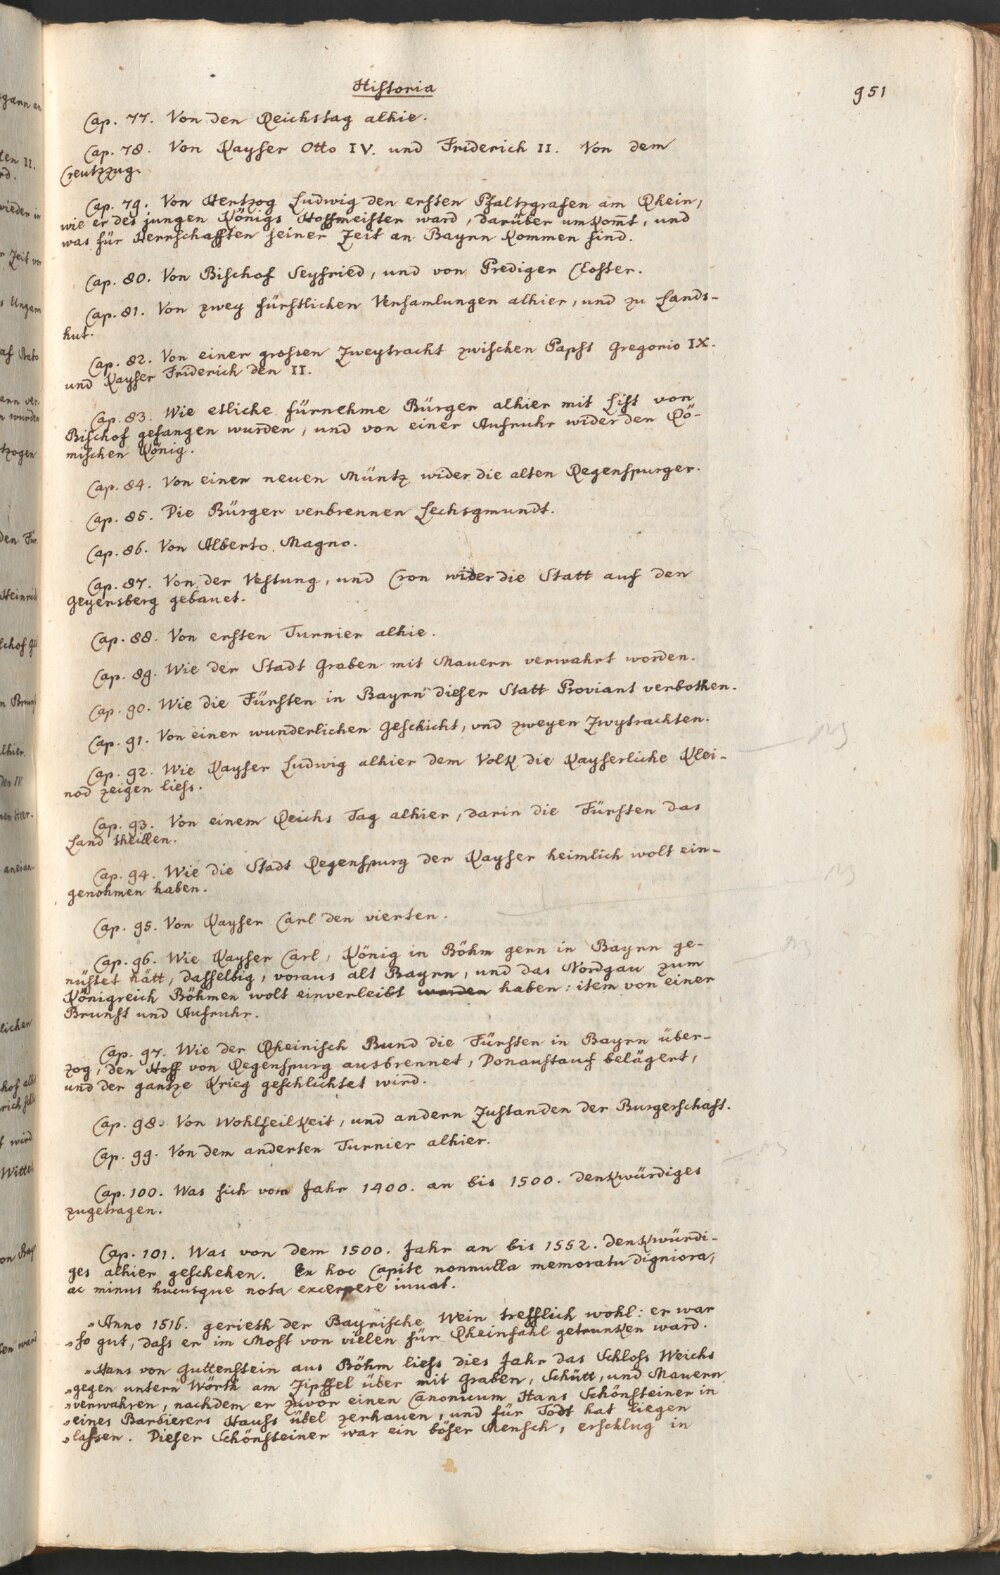 Historia
951
Cap. 77. Von den Reichstag alhie.
Cap. 78. Von Kayser Otto IV. und Friderich II. Von dem
Creutzzug.
Cap. 79. Von Hertzog Ludwig den ersten Pfaltzgrafen am Rhein,
wie er des jungen Königs Hoffmeister ward, darüber umkom̅t, und
was für Herrschafften seiner Zeit an Bayrn kommen sind.
Cap. 80. Von Bischof Seyfried, und von Prediger Closter.
Cap. 81. Von zwey fürstlichen Versamlungen alhier, und zu Lands-
hut.
Cap. 82. Von einer grossen Zweytracht zwischen Papst Gregorio IX.
und Kayser Friderich den II.
Cap. 83. Wie etliche fürnehme Bürger alhier mit List von
Bischof gefangen wurden, und von einer Aufruhr wider den Rö-
mischen König.
Cap. 84. Von einer neuen Müntz wider die alten Regenspurger.
Cap. 85. Die Bürger verbrennen Lechsgmundt.
Cap. 86. Von Alberto Magno.
Cap. 87. Von der Vestung, und Cron wider die Statt auf den
Geyersberg gebauet.
Cap. 88. Von ersten Turnier alhie.
Cap. 89. Wie der Stadt Graben mit Mauern verwahrt worden.
Cap. 90. Wie die Fürsten in Bayrn dieser Statt Proviant verbothen.
Cap. 91. Von einer wunderlichen Geschicht, und zweyen Zwytrachten.
Cap. 92. Wie Kayser Ludwig alhier dem Volk die Kayserliche Klei-
nod zeigen liess.
Cap. 93. Von einem Reichs Tag alhier, darin die Fürsten das
Land theillen.
Cap. 94. Wie die Stadt Regenspurg der Kayser heimlich wolt ein-
genohmen haben.
Cap. 95. Von Kayser Carl den vierten.
Cap. 96. Wie Kayser Carl, König in Böhm gern in Bayrn ge-
nüstet hätt, dasselbig, voraus alt Bayrn, und das Nordgau zum
Königreich Böhmen wolt einverleibt worden haben: item von einer
Brunst und Aufruhr.
Cap. 97. Wie der Rheinisch Bund die Fürsten in Bayrn über-
zog, den Hoff von Regenspurg ausbrennet, Donaustauf belägert,
und der gantze Krieg geschlichtet wird.
Cap. 98. Von Wohlfeilkeit, und andern Zustanden der Burgerschaft.
Cap. 99. Von dem anderten Turnier alhier.
Cap. 100. Was sich vom Jahr 1400. an bis 1500. denkwürdiges
zugetragen.
Cap. 101. Was von dem 1500. Jahr an bis 1552. denkwürdi-
ges alhier geschehen. Ex hoc Capite nonnulla memoratu digniora,
ac minus hucusque nota excerpere iuvat.
„Anno 1516. gerieth der Bayrische Wein trefflich wohl: er war
„so gut, dass er im Most von vielen für Rheinfahl getrunken ward.
„Hans von Guttenstein aus Böhm liess dies Jahr das Schloss Weichs
„gegen untern Wörth am Zipffel über mit Graben, Schütt, und Mauern
„verwahren, nachdem er zuvor einen Canonicum Hans Schönsteiner in
„eines Barbierers Hauss übel zerhauen, und für Todt hat liegen
„lassen. Dieser Schönsteiner war ein böser Mensch, erschlug in